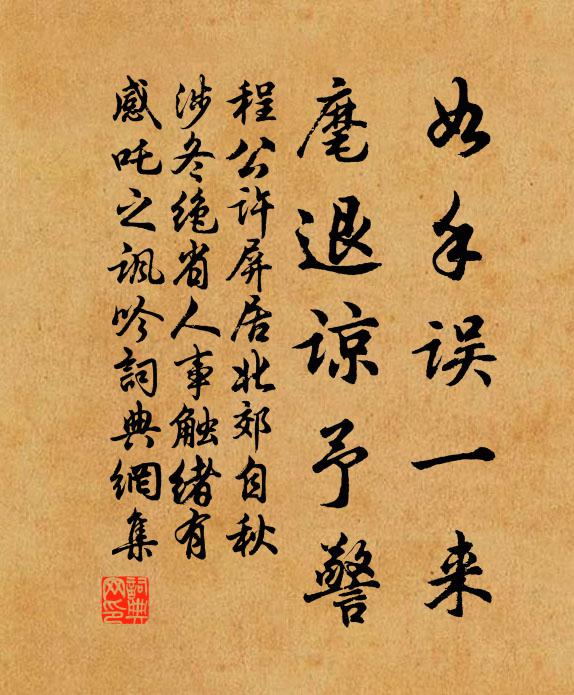 如手误一来
麾退谅予警
程公许屏居北郊自秋
涉冬绝省人事触绪有
感吒之讽吟詞典網集